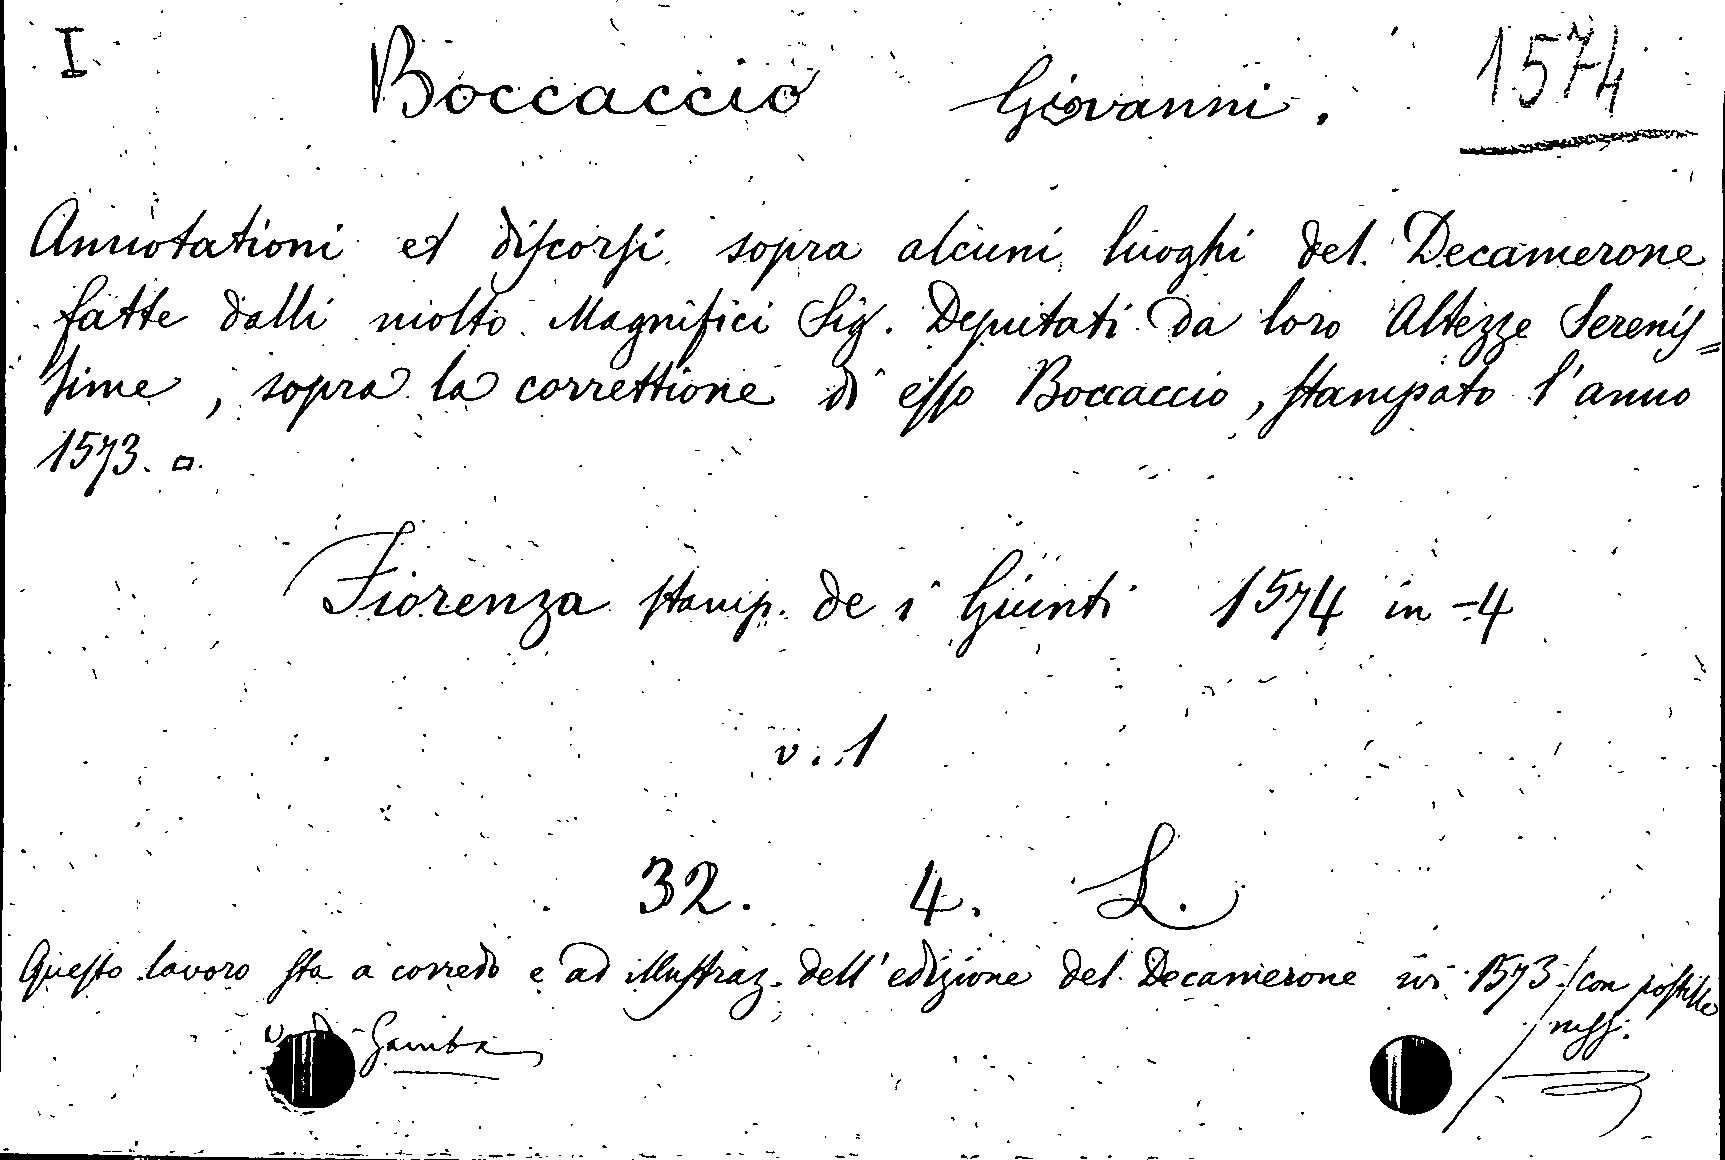 I Boccaccio Giovanni. 1574
Annotationi et discorsi sopra alcuni luoghi del Decamerone
fatte dalli molto Magnifici Sig. Deputati da loro Altezze Serenis=
sime, sopra la correttione di esso Boccaccio, stampato l'anno
1573.
Fiorenza stamp. de i Giunti 1574 in -4
v. 1
32. 4. L.
Questo lavoro sta a corredo e ad illustraz. dell'edizione del Decamerone in 1573 / con postille
mss.
Gamba